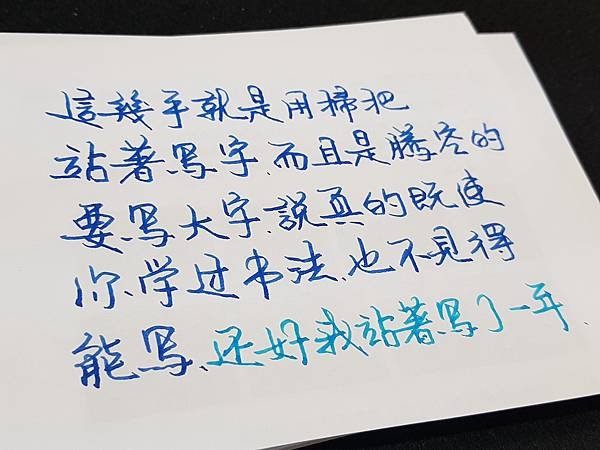 這幾乎就是用掃把
站著写字、而且是騰空的
要写大字、說真的既使
你、学过书法、也不見得
能写、还好我站著写了一年、